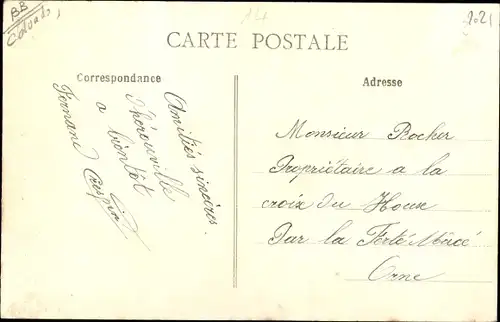 BB
Calvados
14
2021
CARTE POSTALE
Correspondance
Adresse
Amitiés sincères.
Thérouville
a bientôt
Fernand Crespin
Monsieur Rocher
Propriétaire a la
croix du Houx
Par la Ferté Macé
Orne